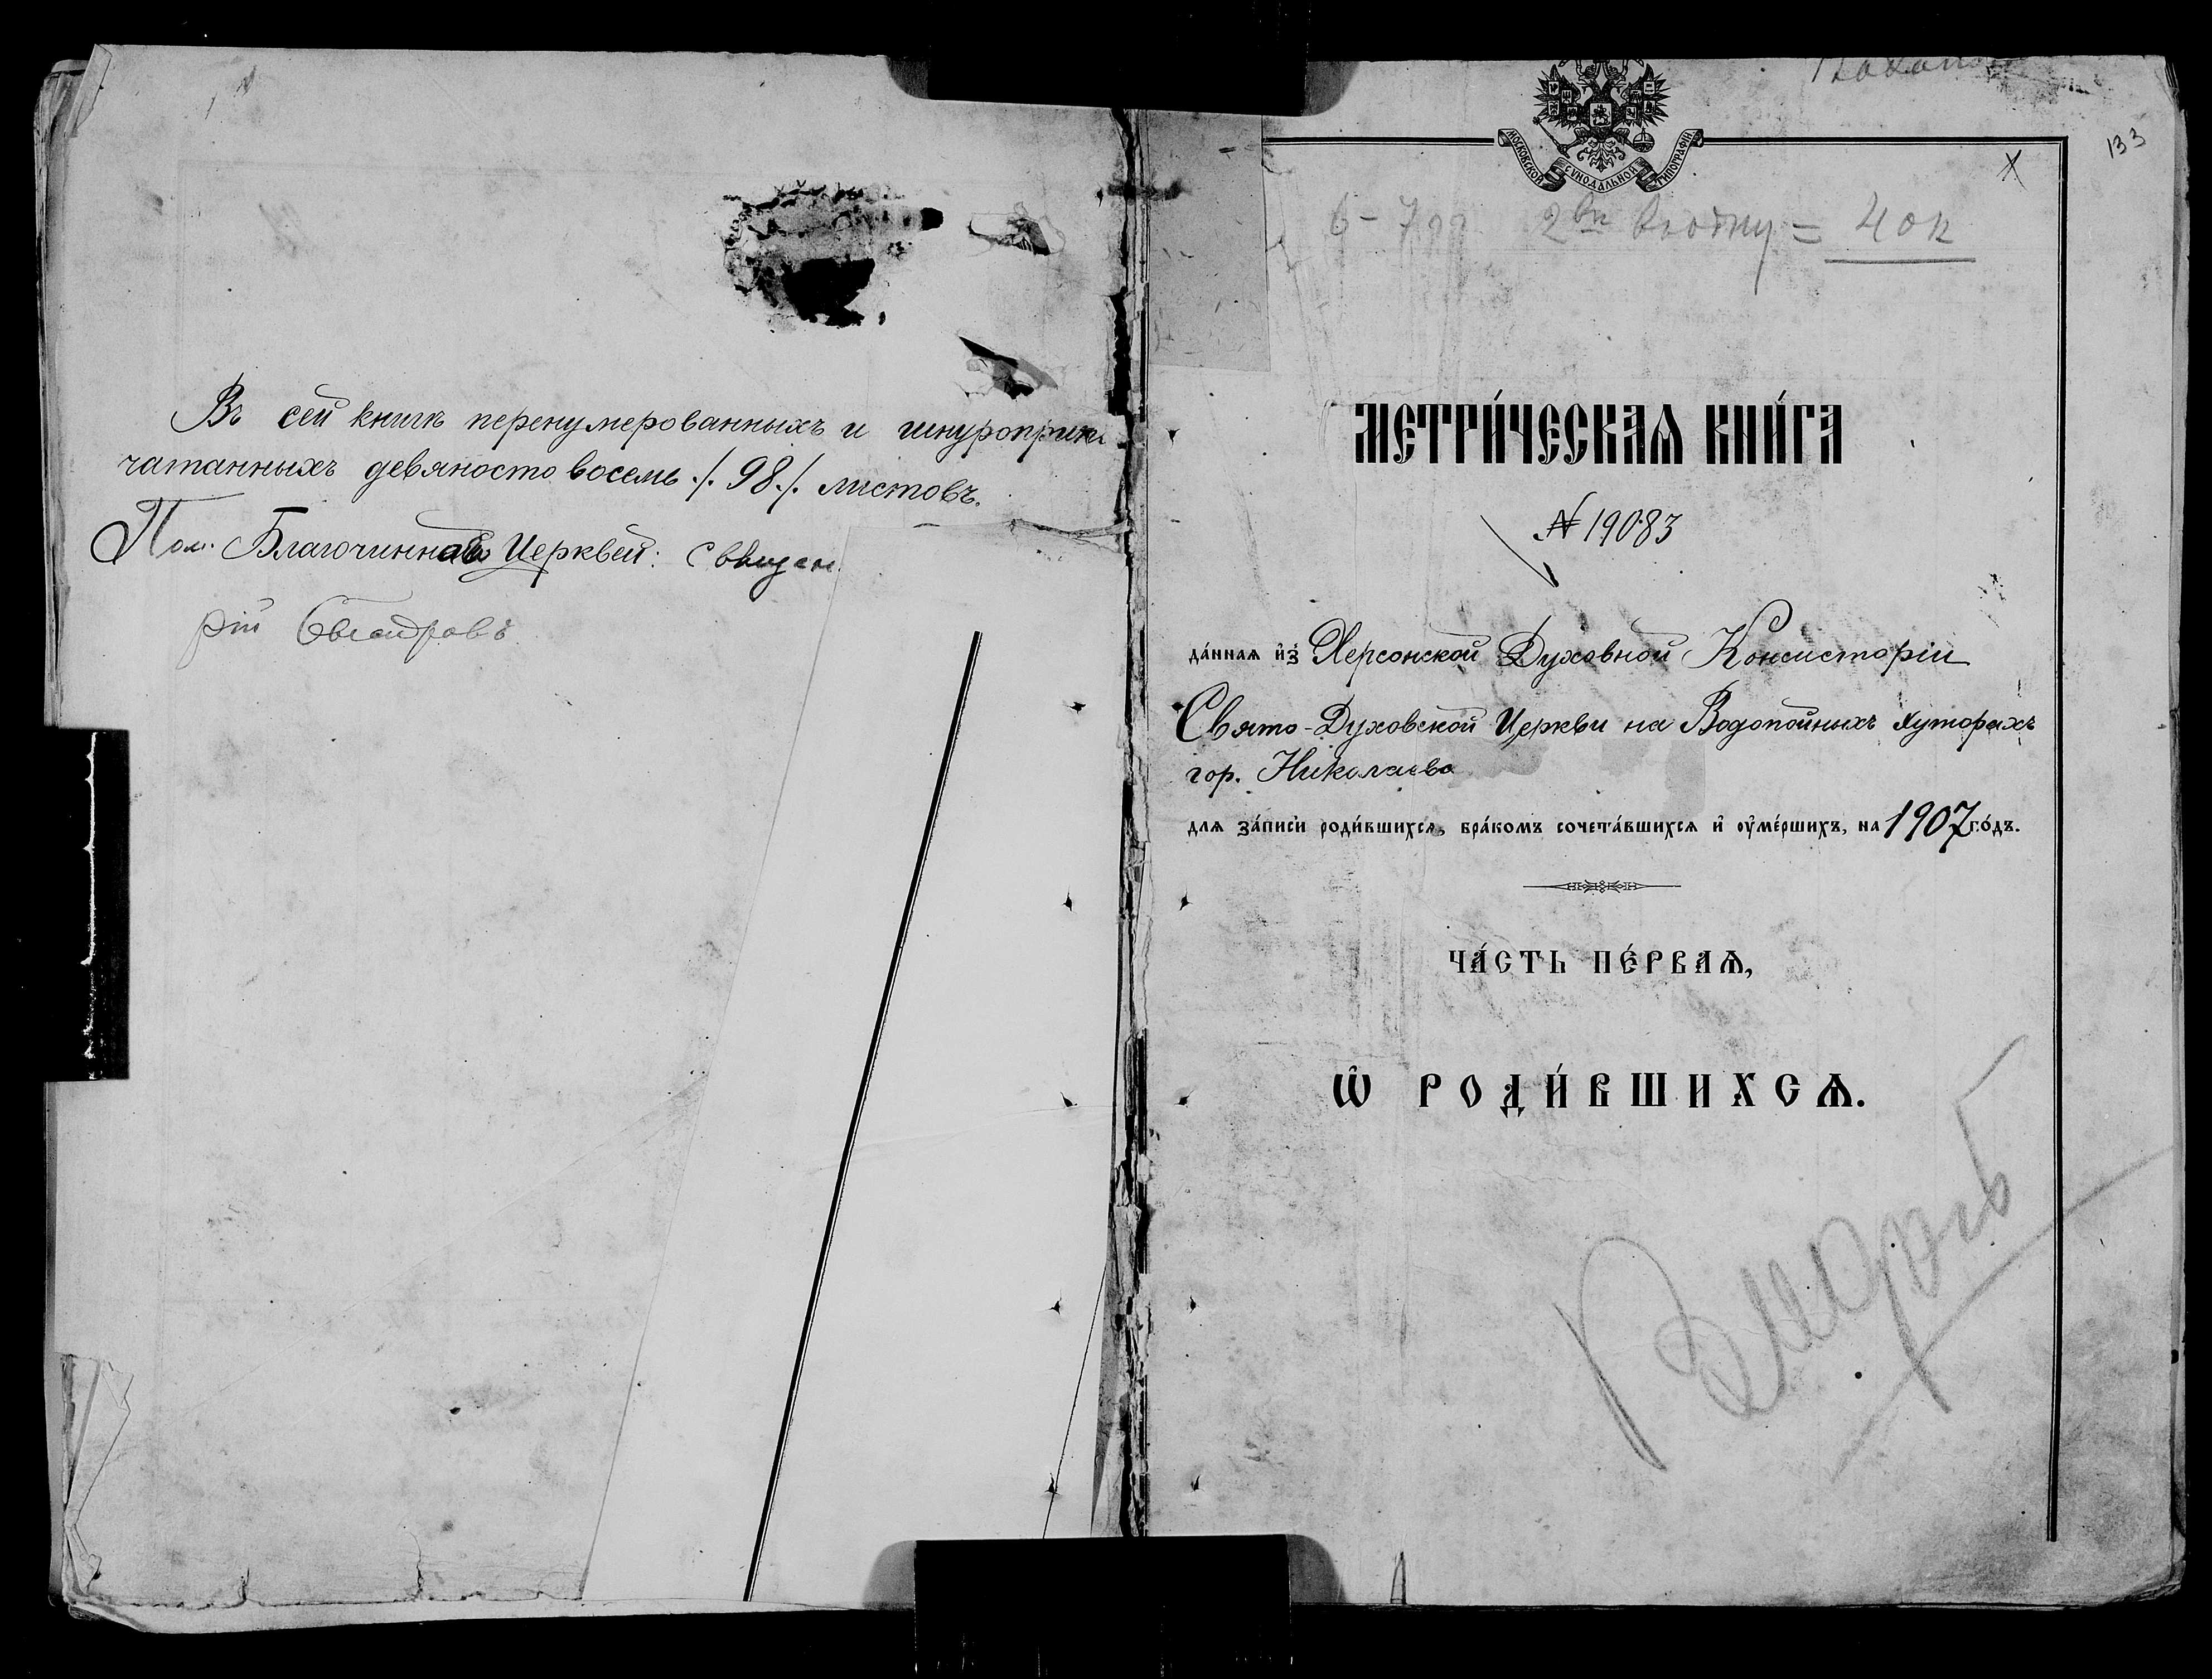 Въ сей книгѣ перенумерованныхъ и шнуроприпе
чатанныхъ девяносто восемь ./. 98 ./. листовъ.
Пом. Благочиннаго Церквей: Священ
рій
133
МОСКОВСКОЙ СѴНОДАЛЬНОЙ ТИПОГРАФІИ
= 40 к
МЕТРИ́ЧЕСКАѦ КНИ́ГА
№ 19083
да́ннаѧ и҆з̾ Херсонской Духовной Консисторіи
Свято-Духовской Церкви на Водопойныхъ хуторахъ
гор. Николаева
длѧ за́писи роди́вшихсѧ, бра́комъ сочета́вшихсѧ и҆ ᲂу҆ме́ршихъ, на 1907 го́дъ.
ЧА́СТЬ ПЕ́РВАѦ,
Ѽ РОДИ́ВШИХСѦ.